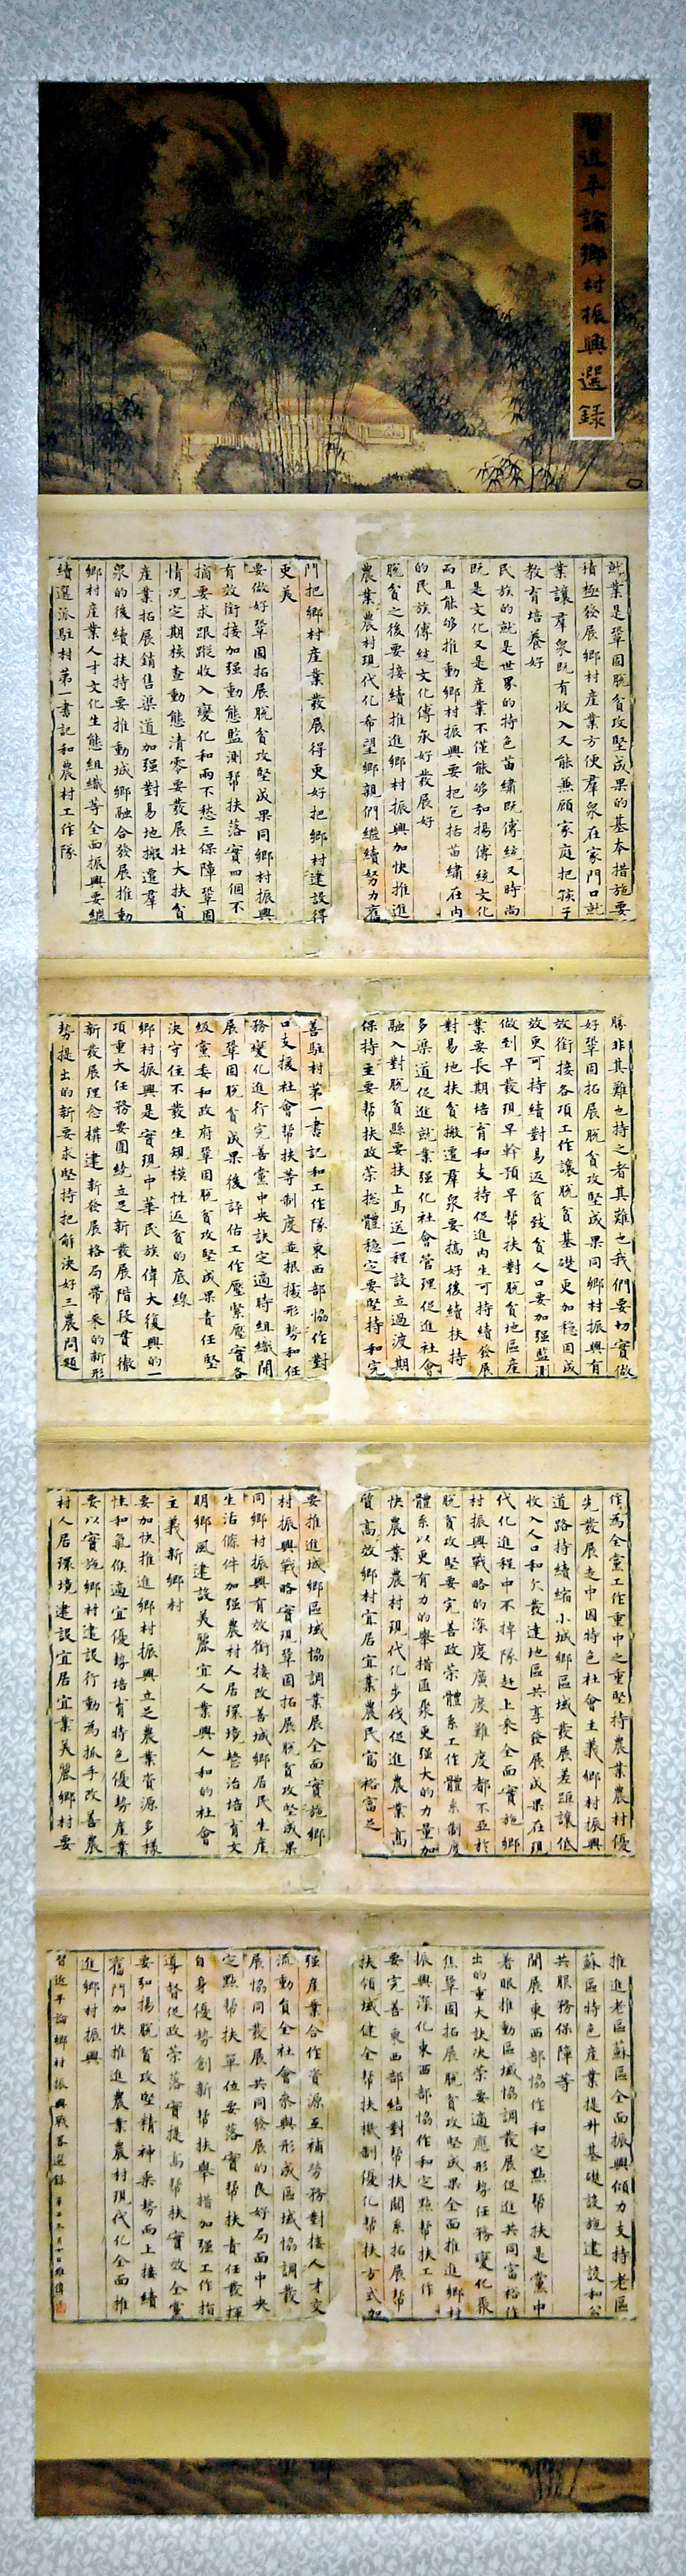 習近平論鄉村振興選錄
就業是鞏固脫貧攻堅成果的基本措施要
積極發展鄉村產業方便羣衆在家門口就
業讓羣衆既有收入又能兼顧家庭把孩子
教育培養好
民族的就是世界的特色苗繡既傳統又時尚
既是文化又是產業不僅能够弘揚傳統文化
而且能够推動鄉村振興要把包括苗繡在内
的民族傳統文化傳承好發展好
脫貧之後要接續推進鄉村振興加快推進
農業農村現代化希望鄉親們繼續努力奮
鬥把鄉村產業發展得更好把鄉村建設得
更美
要做好鞏固拓展脫貧攻堅成果同鄉村振興
有效銜接加强動態監測幫扶落實四個不
摘要求跟蹤收入變化和兩不愁三保障鞏固
情况定期核查動態清零要發展壯大扶貧
產業拓展銷售渠道加强對易地搬遷羣
衆的後續扶持要推動城鄉融合發展推動
鄉村產業人才文化生態組織等全面振興要繼
續選派駐村第一書記和農村工作隊
勝非其難也持之者其難也我們要切實做
好鞏固拓展脫貧攻堅成果同鄉村振興有
效銜接各項工作讓脫貧基礎更加穩固成
效更可持續對易返貧致貧人口要加强監測
做到早發現早幹預早幫扶對脫貧地區產
業要長期培育和支持促進内生可持續發展
對易地扶貧搬遷羣衆要搞好後續扶持
多渠道促進就業强化社會管理促進社會
融入對脫貧縣要扶上馬送一程設立過渡期
保持主要幫扶政策總體穩定要堅持和完
善駐村第一書記和工作隊東西部協作對
口支援社會幫扶等制度並根據形勢和任
務變化進行完善黨中央決定適時組織開
展鞏固脫貧成果後評估工作壓緊壓實各
級黨委和政府鞏固脫貧攻堅成果責任堅
決守住不發生規模性返貧的底線
鄉村振興是實現中華民族偉大復興的一
項重大任務要圍繞立足新發展階段貫徹
新發展理念構建新發展格局帶來的新形
勢提出的新要求堅持把解決好三農問題
作爲全黨工作重中之重堅持農業農村優
先發展走中國特色社會主義鄉村振興
道路持續縮小城鄉區域發展差距讓低
收入人口和欠發達地區共享發展成果在現
代化進程中不掉隊趕上來全面實施鄉
村振興戰略的深度廣度難度都不亞於
脫貧攻堅要完善政策體系工作體系制度
體系以更有力的舉措匯聚更强大的力量加
快農業農村現代化步伐促進農業高
質高效鄉村宜居宜業農民富裕富足
要推進城鄉區域協調業展全面實施鄉
村振興戰略實現鞏固拓展脫貧攻堅成果
同鄉村振興有效銜接改善城鄉居民生產
生活條件加强農村人居環境整治培育文
明鄉風建設美麗宜人業興人和的社會
主義新鄉村
要加快推進鄉村振興立足農業資源多樣
性和氣候適宜優勢培育特色優勢產業
要以實施鄉村建設行動爲抓手改善農
村人居環境建設宜居宜業美麗鄉村要
推進老區蘇區全面振興傾力支持老區
蘇區特色產業提升基礎設施建設和公
共服務保障等
開展東西部協作和定點幫扶是黨中央
着眼推動區域協調發展促進共同富裕作
出的重大決決策要適應形勢任務變化聚
焦鞏固拓展脫貧攻堅成果全面推進鄉村
振興深化東西部協作和定點幫扶工作
要完善東西部結對幫扶關系拓展幫
扶領域健全幫扶機制優化幫扶方式加
强產業合作資源互補勞務對接人才交
流動員全社會參與形成區域協調發
展協同發展共同發展的良好局面中央
定點幫扶單位要落實幫扶責任發揮
自身優勢創新幫扶舉措加强工作指
導督促政策落實提高幫扶實效全黨
要弘揚脫貧攻堅精神乘勢而上接續
奮鬥加快推進農業農村現代化全面推
進鄉村振興
習近平論鄉村振興戰略選錄